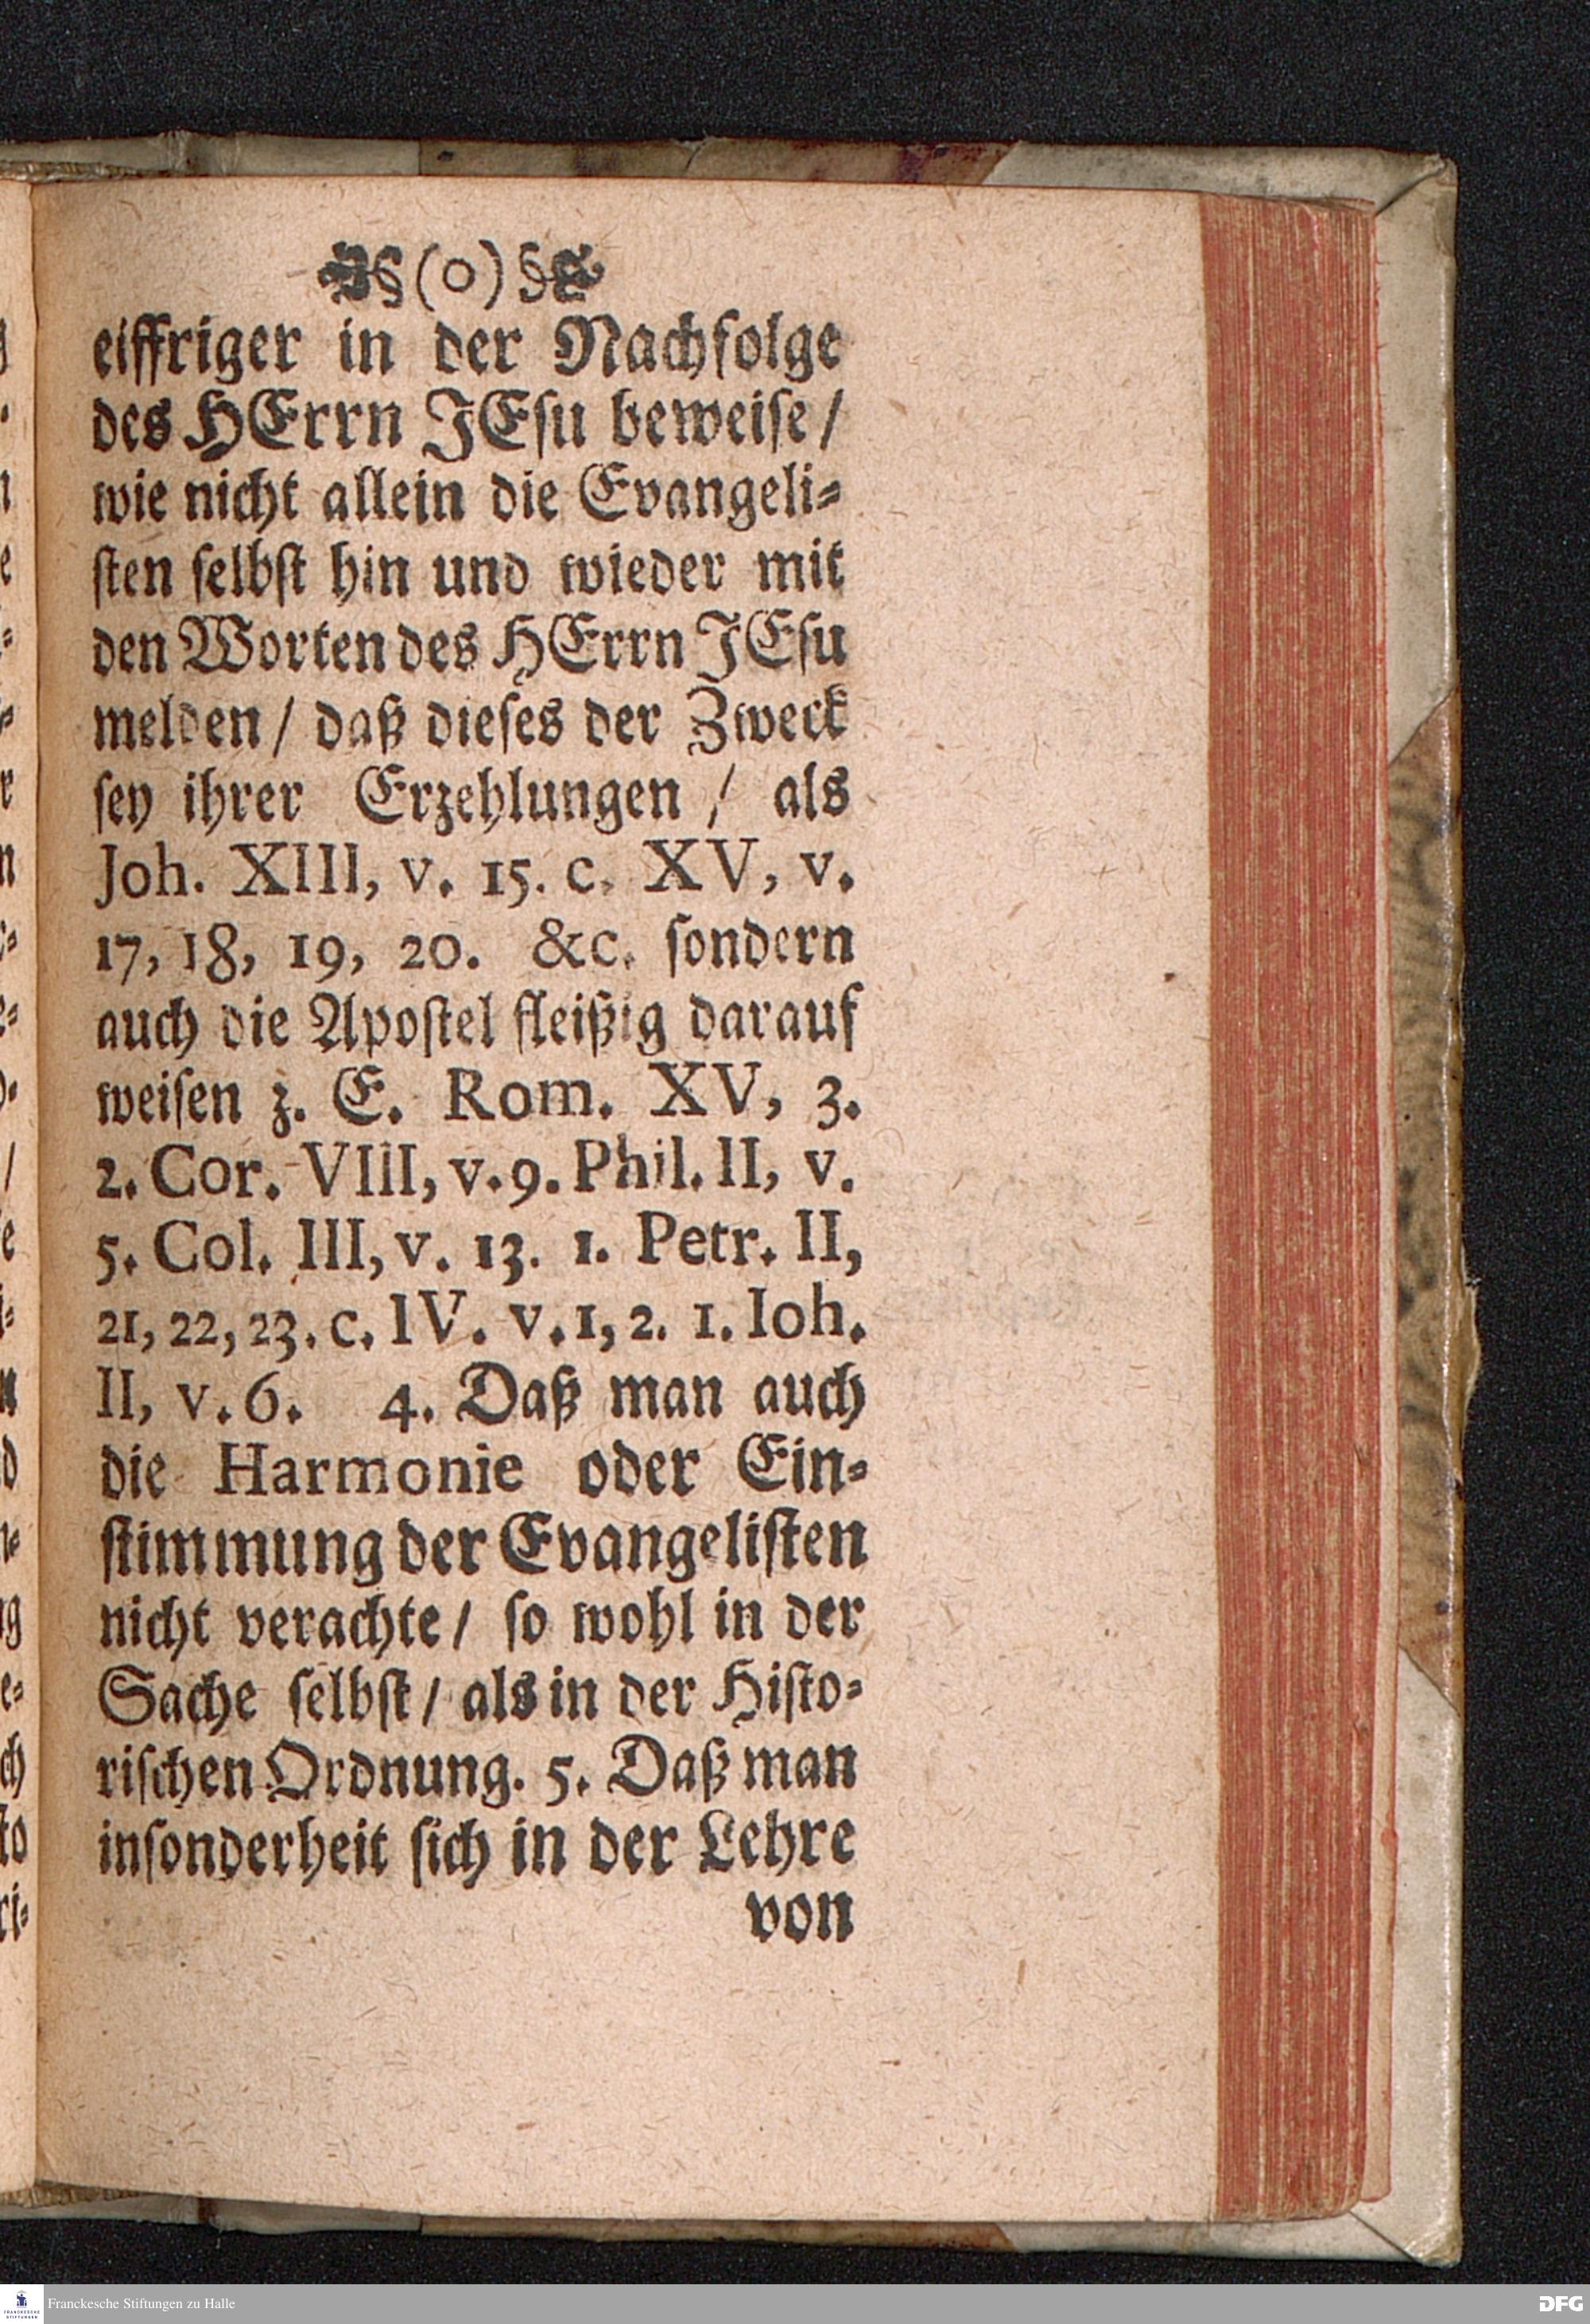 §(o)§
eiffriger in der Nachfolge
des HErrn JEſu beweiſe/
wie nicht allein die Evangeli⸗
ſten ſelbſt hin und wieder mit
den Worten des HErrn JEſu
melden/ daß dieſes der Zweck
ſey ihrer Erzehlungen / als
Joh. XIII, v. 15. c. XV, v.
17, 18, 19, 20. &c. ſondern
auch die Apoſtel fleißig darauf
weiſen z. E. Rom. XV, 3.
2. Cor. VIII, v. 9. Phil. II, v.
5. Col. III, v. 13. 1. Petr. II,
21, 22, 23. c. IV. v. 1, 2. 1. Ioh.
II, v. 6. 4. Daß man auch
die Harmonie oder Ein⸗
ſtimmung der Evangeliſten
nicht verachte/ ſo wohl in der
Sache ſelbſt/ als in der Hiſto⸗
riſchen Ordnung. 5. Daß man
inſonderheit ſich in der Lehre
von
Franckesche Stiftungen zu Halle
DFG